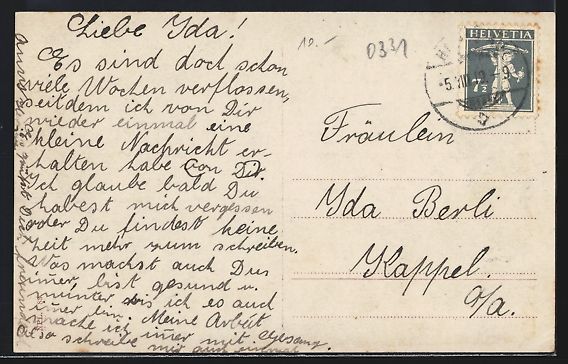 Liebe Ida!
Es sind doch schon
viele Wochen verflossen,
seitdem ich von Dir
wieder einmal eine
kleine Nachricht er-
halten habe von Dir.
Ich glaube bald Du
habest mich vergessen
oder Du findest keine
Zeit mehr zum schreiben.
Was machst auch Du
imer, bist gesund u.
munter bis ich es auch
imer bin. Meine Arbeit
mache ich imer mit Gesang.
Also schreibe mir auch einmal
10.-
0331
HELVETIA
7½
5.VIII.
Fräulein
Ida Berli
Kappel
a/A.